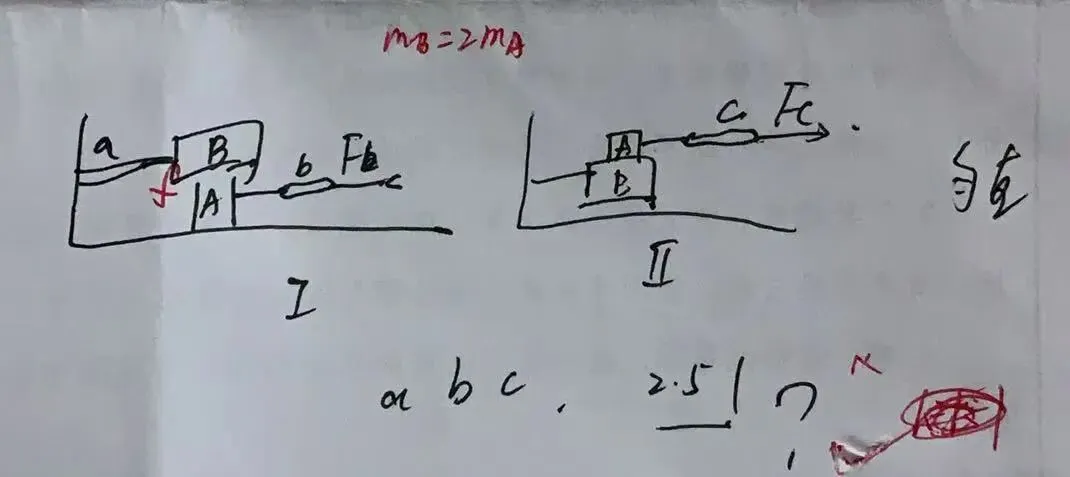 mB=2mA
a B b Fb A
A c Fc B
I
II
a b c . 2.5 ?